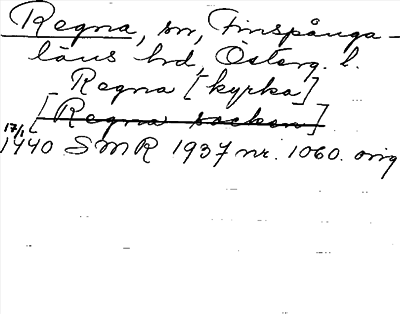 Regna, sn, Finspånga-
läns hd, Österg. l.
Regna [kyrka]
[Regna socken]
17/1
1440 SMR 1937 nr. 1060. orig